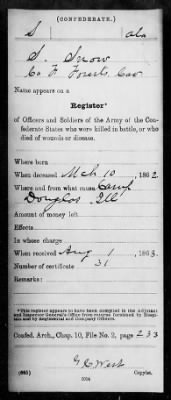 (CONFEDERATE.)
S Ala
S. Snow
Co. F. Forests Cav
Name appears on a
Register*
of Officers and Soldiers of the Army of the Con-
federate States who were killed in battle, or who
died of wounds or disease.
Where born
When deceased Mch 10, 1862
Where and from what cause Camp
Douglas Ill
Amount of money left
Effects
In whose charge
When received Aug 1, 1863.
Number of certificate 31
Remarks:
*This register appears to have been compiled in the Adjutant
and Inspector General's Office from returns furnished by Hospi-
tals and by Regimental and Company Officers.
Confed. Arch., Chap. 10, File No. 2, page 233
G. C. West
Copyist.